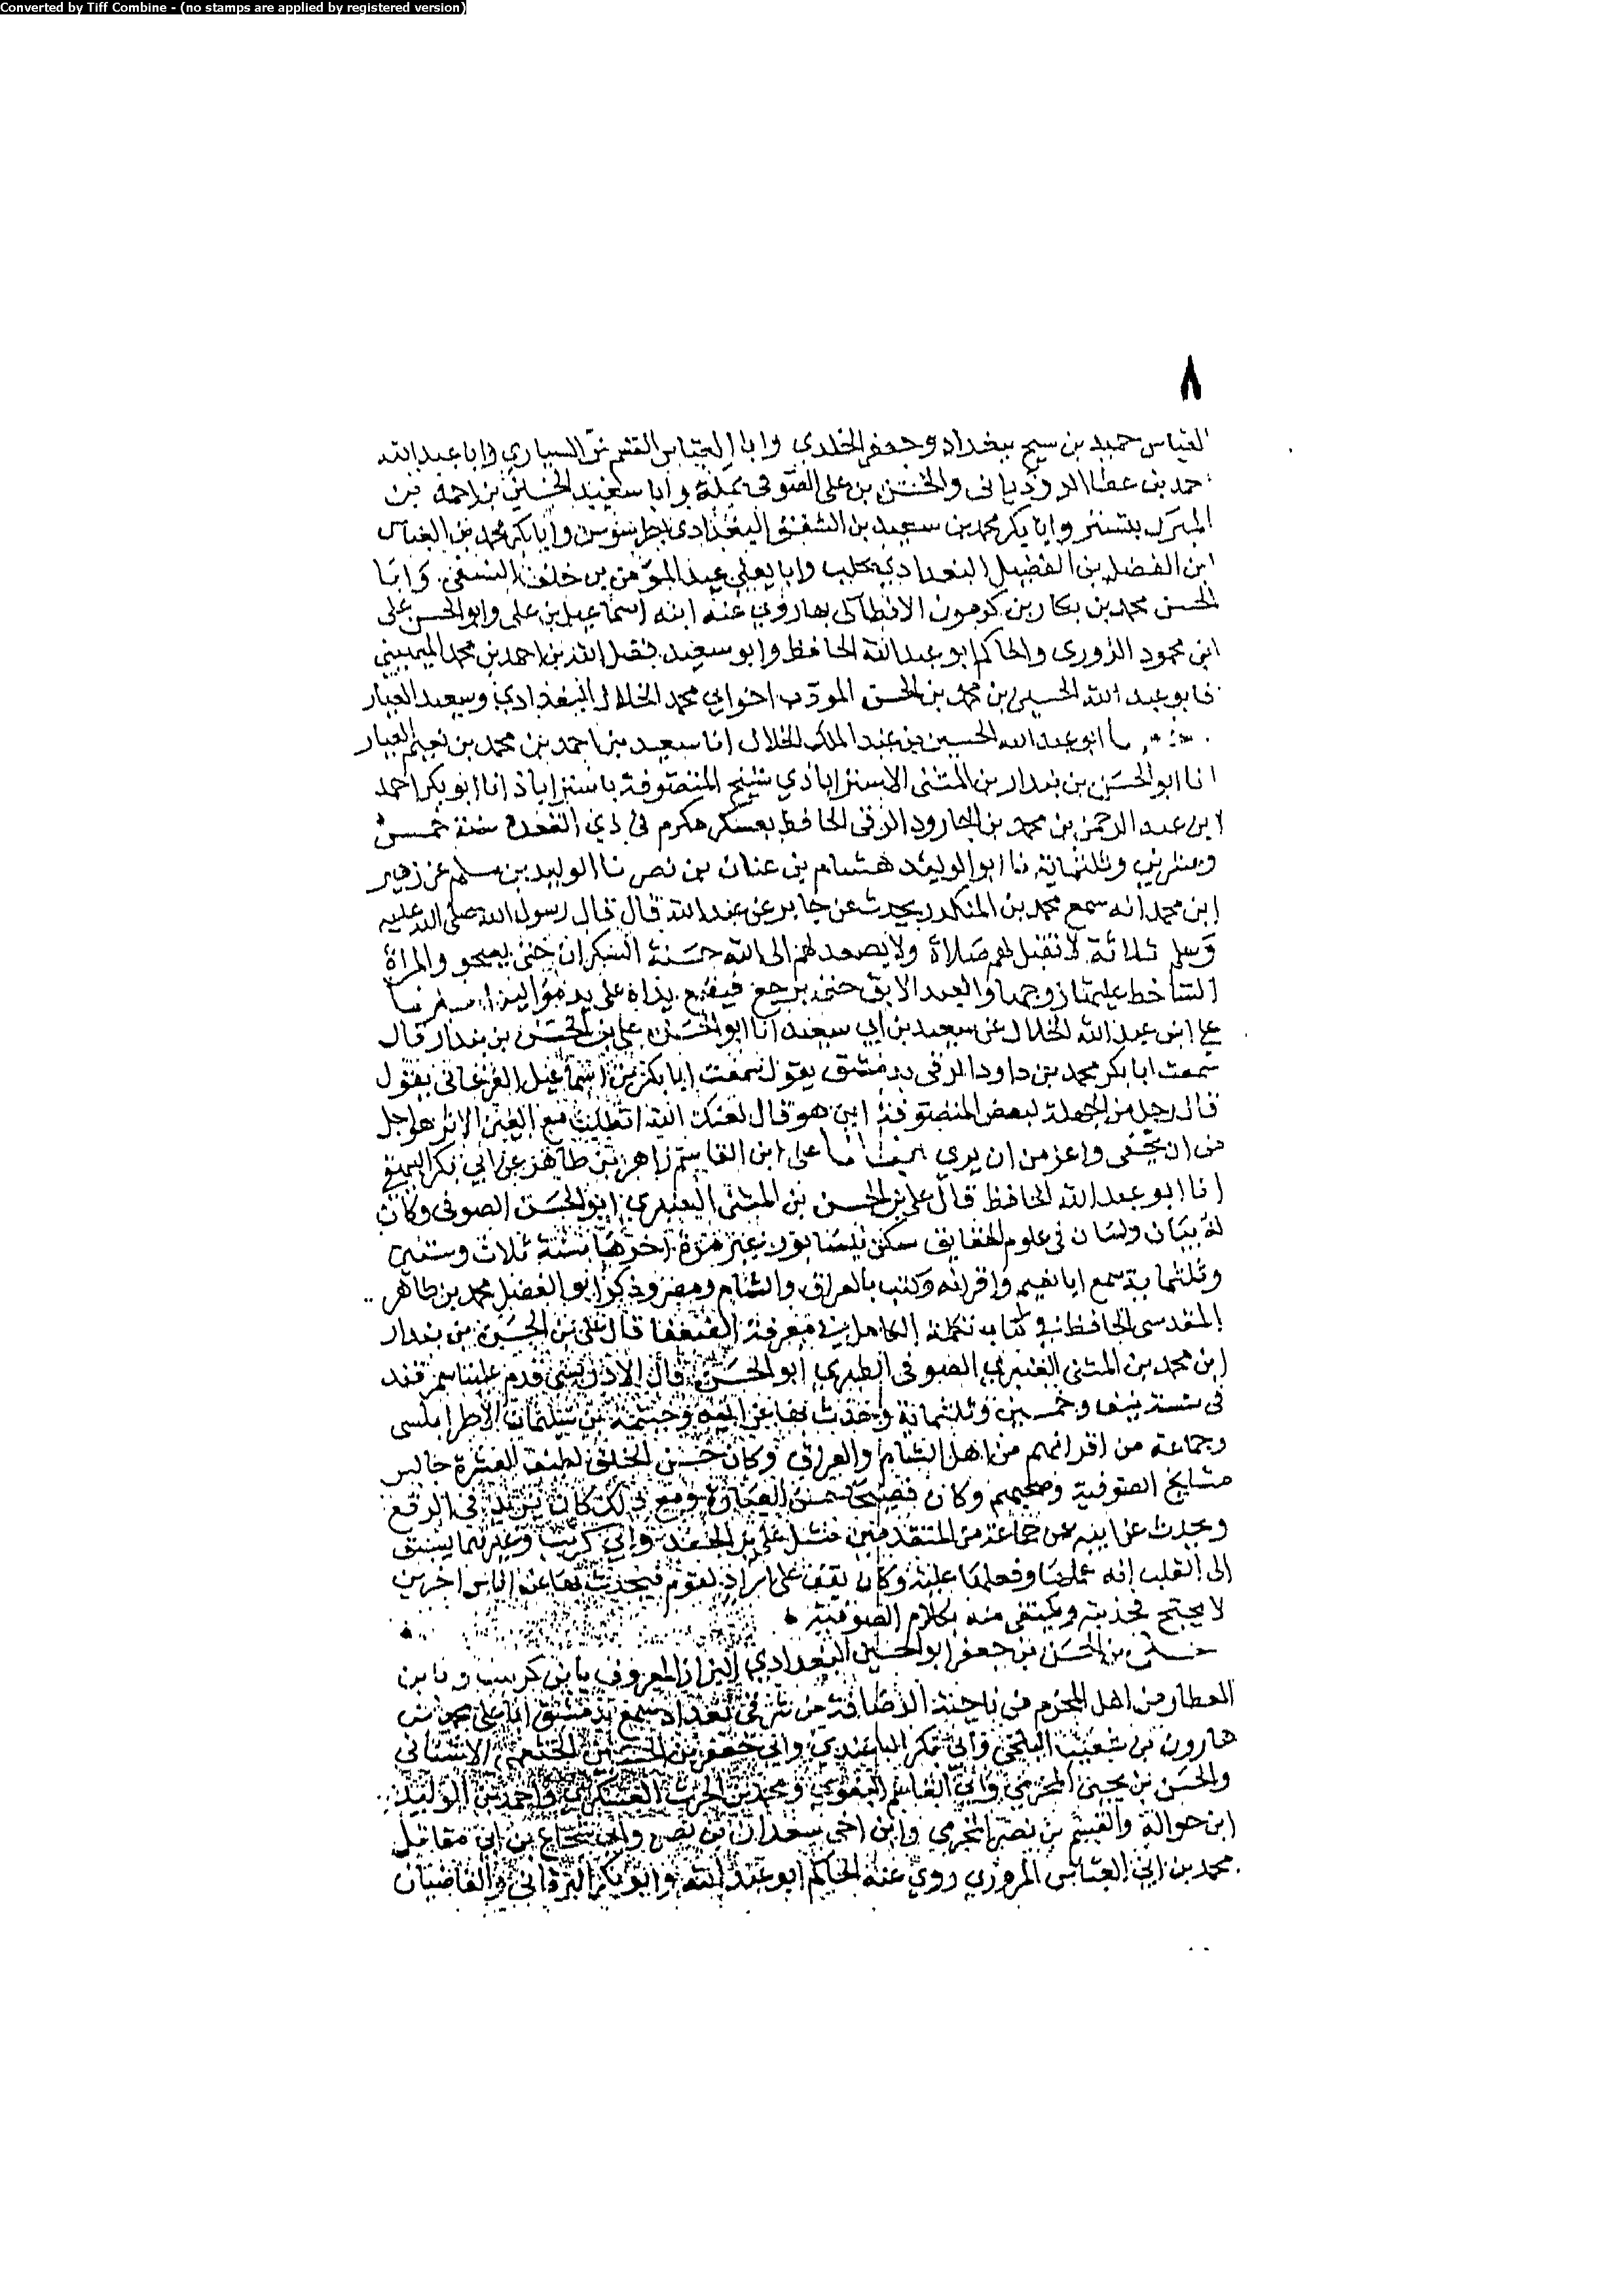 Converted by Tiff Combine - (no stamps are applied by registered version)
٨
العباس حميد بن سيح ببغداد وجعفر الخلدي وابا العباس القسم بن السياري وابا عبد الله
احمد بن عطا الروذباني والحسن بن علي الصوفي بملة وابا سعيد الحسين بن احمد بن
المبرك بتستر وابا بكر محمد بن سعيد بن الشفق البغدادي وابا بكر محمد بن العباس
ابن الفضل بن الفضيل البغدادي بحلب وابا يعلى عبد المؤمن بن خلف النسفي وابا
الحسن محمد بن بكار بن كرمون الانطاكي بها روى عنه ابنه اسماعيل بن علي وابو الحسن علي
ابن محمود الزوري والحاكم ابو عبد الله الحافظ وابو سعيد فضل الله بن احمد بن محمد الميهني
وابو عبد الله الحسين بن محمد بن الحسن المودب اخو ابي محمد الخلال البغدادي وسعيد العيار
ابو عبد الله الحسين بن عبد الملك الخلال انا سعيد بن احمد بن محمد بن نعيم العيار
انا ابو الحسن بن بندار بن المثنى الاستراباذي شيخ المتصوفة باستراباذ انا ابو بكر احمد
ابن عبد الرحمن بن محمد بن الجارود الرقي الحافظ بعسكر مكرم في ذي القعدة سنة خمس
وعشرين وثلثماية نا ابو الوليد هشام بن عمار بن نصر نا الوليد بن مسلم عن زهير
ابن محمد انه سمع محمد بن المنكدر يحدث عن جابر عن عبد الله قال قال رسول الله صلى الله عليه
وسلم ثلاثة لا تقبل لهم صلاة ولا يصعد لهم الى الله حسنة السكران حتى يصحو والمراة
الساخط عليها زوجها والعبد الابق حتى يرجع فيضع يده على يد مواليه
علي ابن عبد الله الخلال عن سعيد بن ابي سعيد انا ابو الحسن علي بن الحسن بن بندار قال
سمعت ابا بكر محمد بن داود الرقي بدمشق يقول سمعت ابا بكر بن اسماعيل الفرغاني يقول
قال رجل من الجهلة لبعض المتصوفة اين هو قال لعنك الله اتطلب مع العين الاثر هو اجل
من ان يخفى واعز من ان يرى على ابن القاسم زاهر بن طاهر عن ابي بكر البيهقي
انا ابو عبد الله الحافظ قال علي بن الحسن بن المثنى العنبري ابو الحسن الصوفي وكان
له بيان ولسان في علوم الحقايق سكن نيسابور غير مرة اخرها سنة ثلاث وستين
وثلثماية سمع ابا نعيم واقرانه وكتب بالعراق والشام ومصر وذكر ابو الفضل محمد بن طاهر
المقدسي الحافظ في كتاب تكملة الكامل في معرفة الضعفا قال علي بن الحسن بن بندار
ابن محمد بن المثنى العنبري الصوفي الطبري ابو الحسن قال الادريسي قدم علينا سمرقند
في سنة نيف وخمسين وثلثمائة وحدث بها عن ابيه وخيثمة بن سليمان الاطرابلسي
وجماعة من اقرانهم من اهل الشام والعراق وكان حسن الخلق لطيف العشرة جالس
مشايخ الصوفية وصحبهم وكان فصيحا حسن العبارة ومع ذلك كان يزيد في الرقع
ويحدث عن ابيه عن جماعة من المتقدمين مثل علي بن الجعد وابي كريب وغيرهما يسبق
الى القلب انه عملها وفعلها عليه وكان يقف على افراد لقوم فيحدث بها عن اناس اخرين
لا يحتج بحديثه ويكتفى منه بكلام الصوفية
علي بن الحسن بن جعفر ابو الحسين البغدادي البزاز المعروف بابن كرنيب وبابن
العطار من اهل المخرم من ناحية الرصافة من شرقي بغداد سمع بدمشق ابا علي محمد بن
هارون بن شعيب البلخي وابي بكر الباغندي وابي جعفر بن الحسين الخثعمي الاشناني
والحسن بن يحيى المخرمي وابي القاسم البغوي ومحمد بن الحرث العسكري واحمد بن الوليد
ابن حوالة والقسم بن نصر المخرمي وابن اخي سعدان بن نصر وابي شجاع بن ابي مقاتل
محمد بن ابي العباس المروزي روى عنه الحاكم ابو عبد الله وابو بكر البرقاني والقاضيان